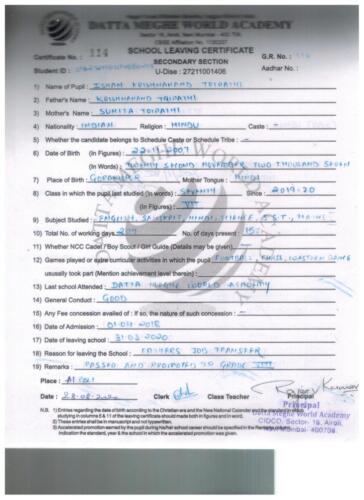 DATTA MEGHE WORLD ACADEMY
Certificate No. : 114
SCHOOL LEAVING CERTIFICATE
G.R. No. :
SECONDARY SECTION
Student ID :
U-Dise : 27211001406
Aadhar No. :
1) Name of Pupil : ISHAN KRISHNANAND TRIPATHI
2) Father's Name : KRISHNANAND TRIPATHI
3) Mother's Name : SUNITA TRIPATHI
4) Nationality : INDIAN Religion : HINDU Caste : -
5) Whether the candidate belongs to Schedule Caste or Schedule Tribe : -
6) Date of Birth (In Figures) : 22-11-2007
(In Words) : TWENTY SECOND NOVEMBER TWO THOUSAND SEVEN
7) Place of Birth : GORAKHPUR Mother Tongue : HINDI
8) Class in which the pupil last studied (In words) : SEVENTH Since : 2019-20
(In Figures) : VII
9) Subject Studied : ENGLISH, SANSKRIT, HINDI, SCIENCE, S.S.T, MATHS
10) Total No. of working days : 207 No. of days present :
11) Whether NCC Cadet / Boy Scout / Girl Guide (Details may be given) : -
12) Games played or extra curricular activities in which the pupil FOOTBALL,
ususally took part (Mention achievement level therein) :
13) Last school Attended : DATTA MEGHE WORLD ACADEMY
14) General Conduct : GOOD
15) Any Fee concession availed of : If so, the nature of such concession : -
16) Date of Admission : 01-04-2018
17) Date of leaving school : 31-03-2020
18) Reason for leaving the School : FATHERS JOB TRANSFER
19) Remarks : PASSED AND PROMOTED TO GRADE VIII
Place : AIROLI
Date : Clerk Class Teacher Principal
Principal
Datta Meghe World Academy
CIDCO, Sector- 19, Airoli,
Navi Mumbai- 400708.
N.B. 1) Entries regarding the date of birth according to the Christian era and the New National Calendar and the standard in which
studying in columns 6 & 11 of the leaving certificate should made both in figures and in words.
2) These entries shall be in manuscript and not typewritten.
3) Accelerated promotion earned by the pupil during his/her school career should be specified in the Remarks column
indication the standard, year & the school in which the accelerated promotion was given.